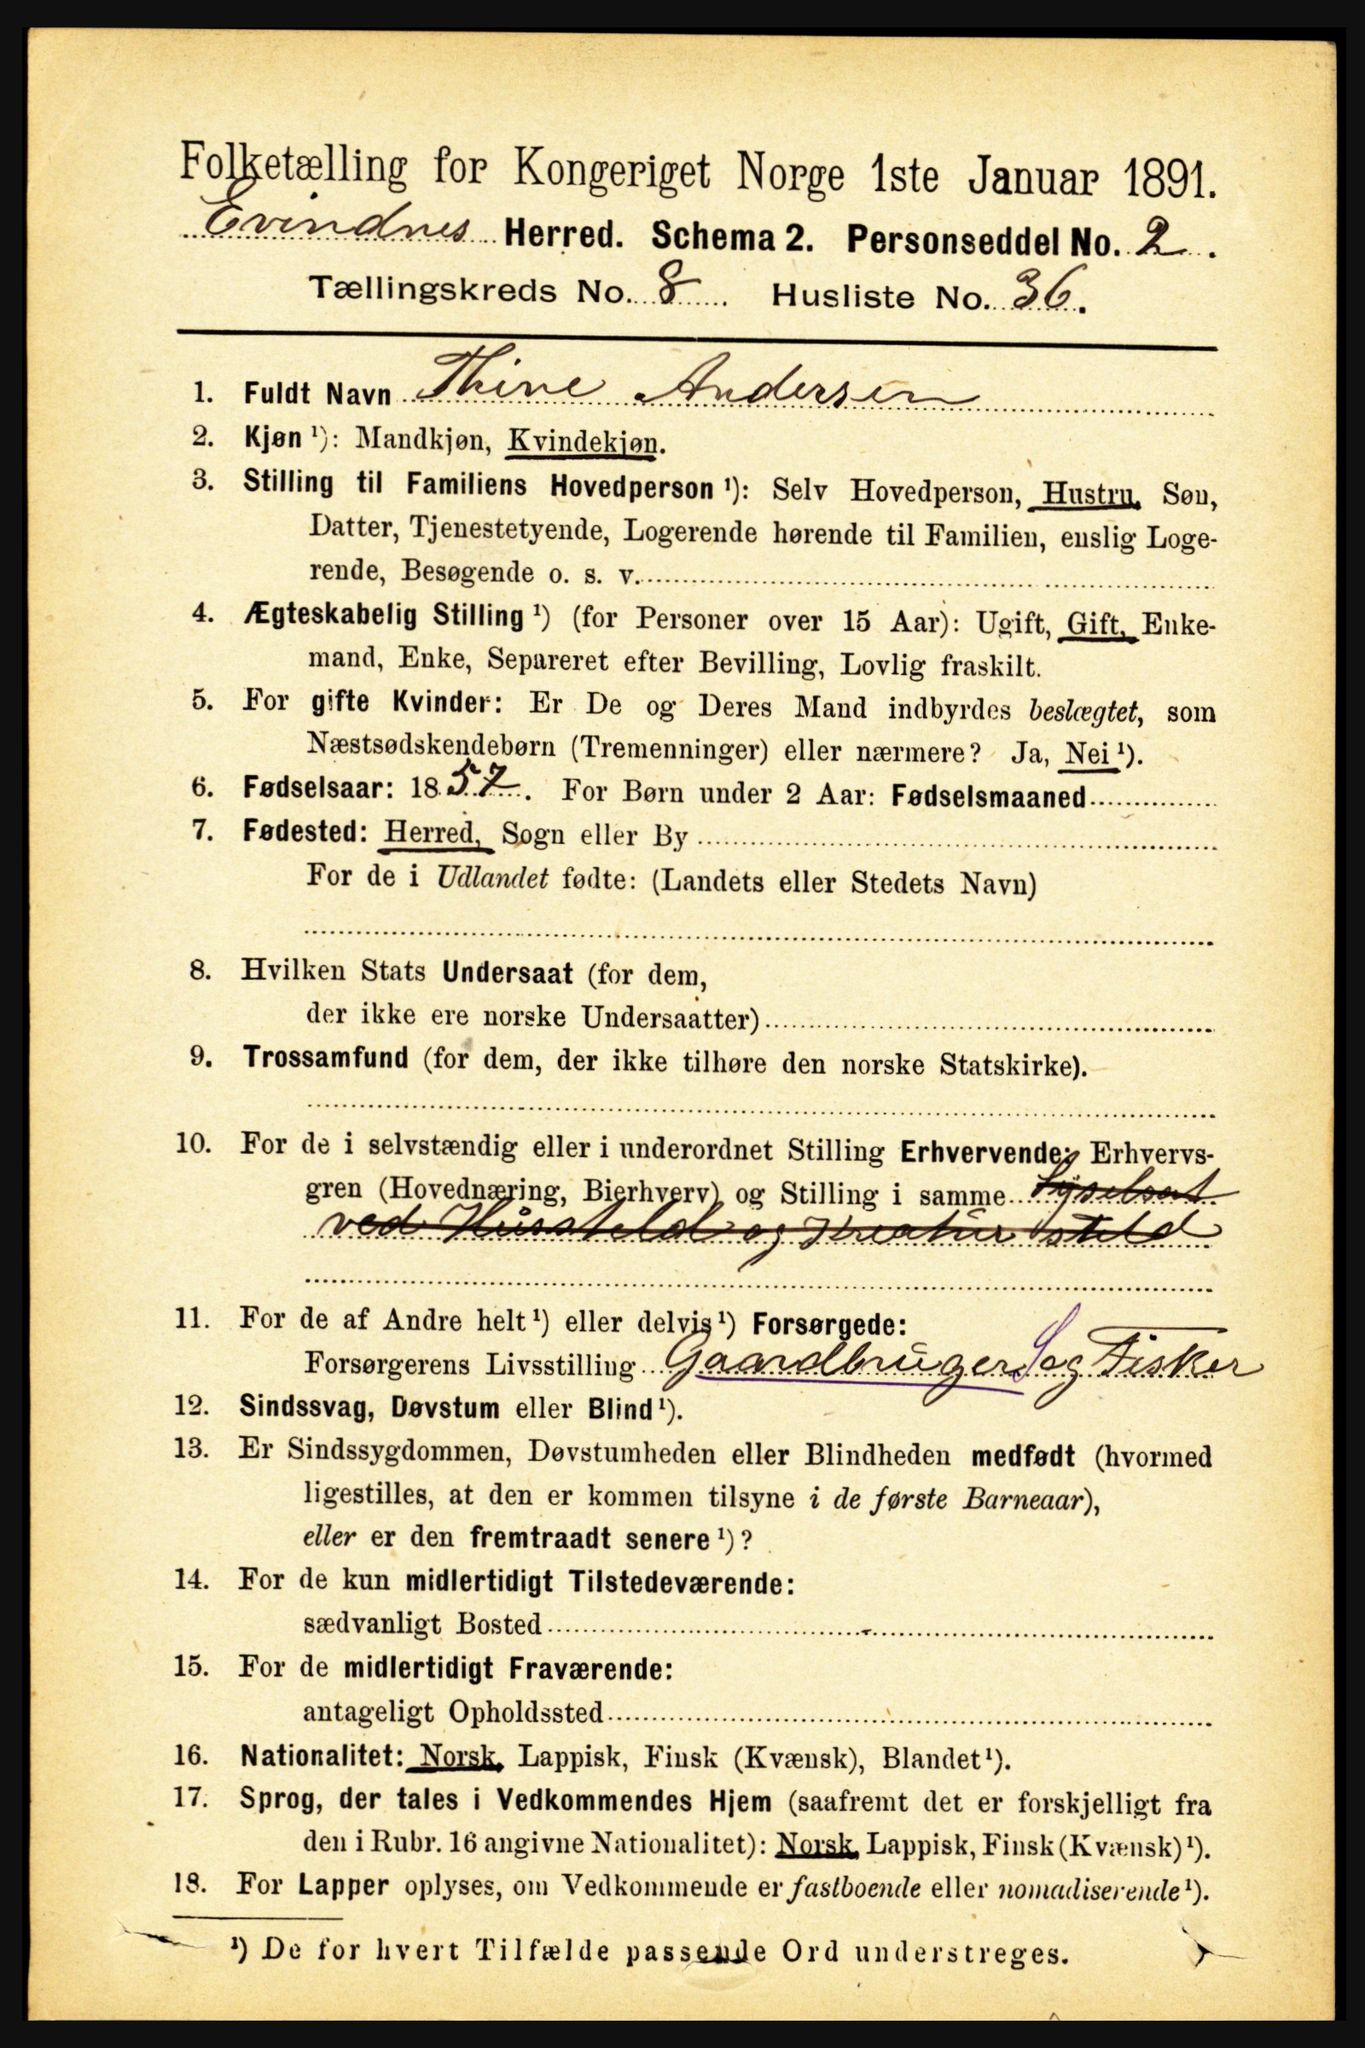 Folketælling for Kongeriget Norge 1ste Januar 1891.
Evindnes Herred. Schema 2. Personseddel No. 2.
Tællingskreds No. 8. Husliste No. 36.
1. Fuldt Navn Thine Andersen
2. Kjøn ¹): Mandkjøn, Kvindekjøn.
3. Stilling til Familiens Hovedperson ¹): Selv Hovedperson, Hustru, Søn,
Datter, Tjenestetyende, Logerende hørende til Familien, enslig Loge-
rende, Besøgende o. s. v.
4. Ægteskabelig Stilling ¹) (for Personer over 15 Aar): Ugift, Gift, Enke-
mand, Enke, Separeret efter Bevilling, Lovlig fraskilt.
5. For gifte Kvinder: Er De og Deres Mand indbyrdes beslægtet, som
Næstsødskendebørn (Tremenninger) eller nærmere? Ja, Nei ¹).
6. Fødselsaar: 1857. For Børn under 2 Aar: Fødselsmaaned
7. Fødested: Herred, Sogn eller By
For de i Udlandet fødte: (Landets eller Stedets Navn)
8. Hvilken Stats Undersaat (for dem,
der ikke ere norske Undersaatter)
9. Trossamfund (for dem, der ikke tilhøre den norske Statskirke).
10. For de i selvstændig eller i underordnet Stilling Erhvervende: Erhvervs-
gren (Hovednæring, Bierhverv) og Stilling i samme Sysselsat
ved Hussteld og Kreaturssteld
11. For de af Andre helt ¹) eller delvis ¹) Forsørgede:
Forsørgerens Livsstilling Gaardbruger S og Fisker
12. Sindssvag, Døvstum eller Blind ¹).
13. Er Sindssygdommen, Døvstumheden eller Blindheden medfødt (hvormed
ligestilles, at den er kommen tilsyne i de første Barneaar),
eller er den fremtraadt senere ¹)?
14. For de kun midlertidigt Tilstedeværende:
sædvanligt Bosted
15. For de midlertidigt Fraværende:
antageligt Opholdssted
16. Nationalitet: Norsk, Lappisk, Finsk (Kvænsk), Blandet ¹).
17. Sprog, der tales i Vedkommendes Hjem (saafremt det er forskjelligt fra
den i Rubr. 16 angivne Nationalitet): Norsk, Lappisk, Finsk (Kvænsk) ¹).
18. For Lapper oplyses, om Vedkommende er fastboende eller nomadiserende ¹).
¹) De for hvert Tilfælde passende Ord understreges.